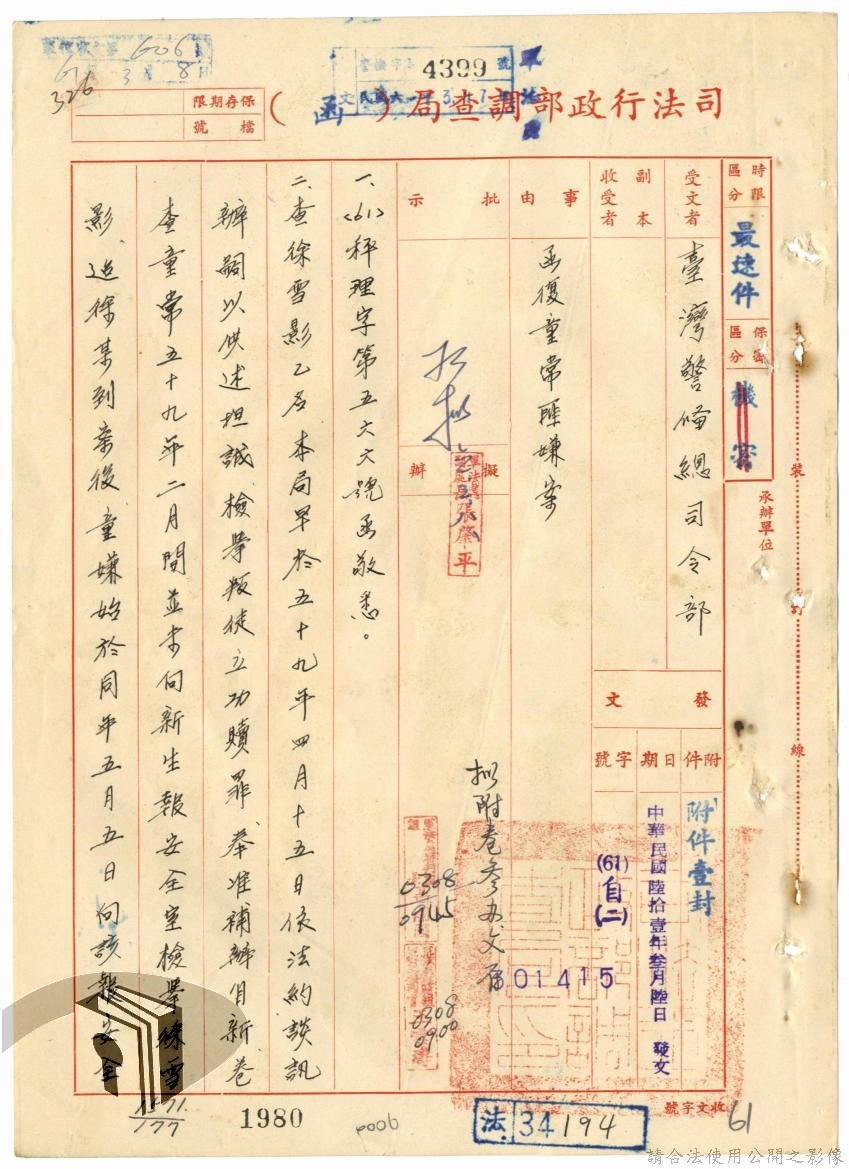 606
3月8日
326
4399
司法行政部調查局（函）
保存期限
檔號
時限區分
最速件
保密區分
機密
承辦單位
裝
訂
線
受文者
臺灣警備總司令部
副本收受者
事由
函復童常匪嫌案
批示
擬辦
張慶平
發文
附件
附件壹封
日期
中華民國陸拾壹年叁月陸日 發文
字號
(61)自(二)
01415
擬附卷參
0308
0945
0308
0900
一、(61)秤理字第五六六號函敬悉。
二、查徐雪影乙名本局早於五十九年四月十五日依法約談訊
辦嗣以供述坦誠、檢舉叛徒立功贖罪、奉准補辦自新卷
查童常五十九年二月間並未向新生報安全室檢舉徐雪
影、迨徐某到案後、童嫌始於同年五月五日向該報安全
1571
177
1980
0006
收文字號
法 34194
61
請合法使用公開之影像